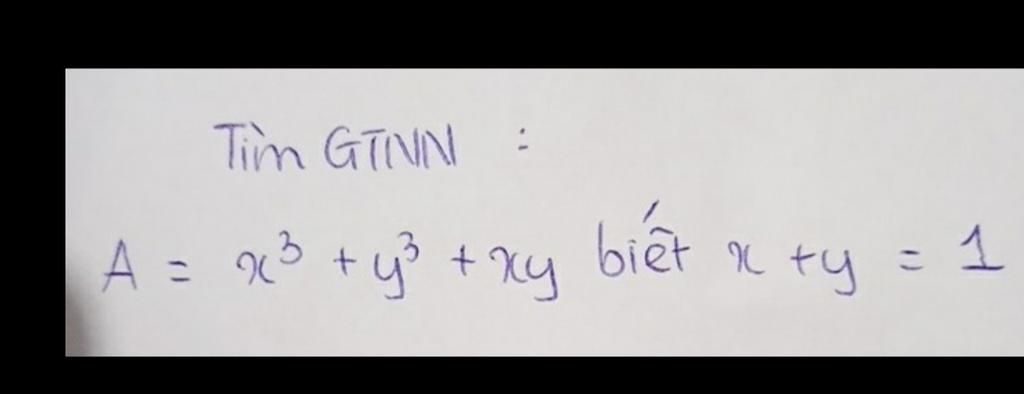 Tìm GTNN :
A = x³ + y³ + xy biết x + y = 1